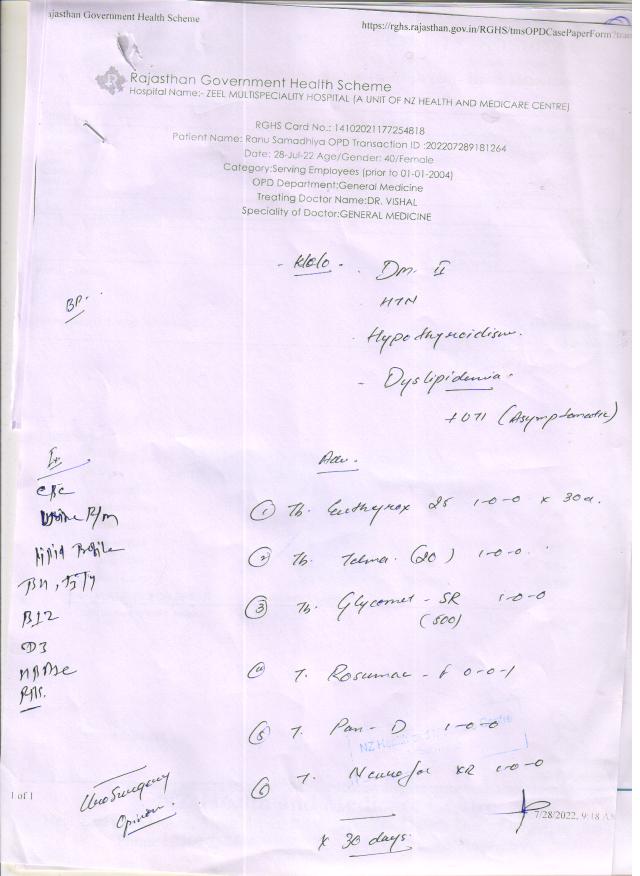 ajasthan Government Health Scheme
https://rghs.rajasthan.gov.in/RGHS/tmsOPDCasePaperForm?tran
Rajasthan Government Health Scheme
Hospital Name:- ZEEL MULTISPECIALITY HOSPITAL (A UNIT OF NZ HEALTH AND MEDICARE CENTRE)
RGHS Card No.: 14102021177254818
Patient Name: Ranu Samadhiya OPD Transaction ID :202207289181264
Date: 28-Jul-22 Age/Gender: 40/Female
Category:Serving Employees (prior to 01-01-2004)
OPD Department:General Medicine
Treating Doctor Name:DR. VISHAL
Speciality of Doctor:GENERAL MEDICINE
- K/c/o - Dm. II
BP.
HTN
Hypothyroidism.
- Dyslipidemia.
+ UTI (Asymptomatic)
Adv.
CBC
① Tb. Euthyrox 25 1-0-0 x 30d.
Urine R/m
Lipid Profile
② Tb. Telma (20) 1-0-0
B12
③ Tb. Glycomet - SR 1-0-0
(500)
D3
HbA1c
④ T. Rosumac - F 0-0-1
RBS.
⑤ T. Pan - D 1-0-0
NZ
⑥ T. XR 1-0-0
1 of 1
UroSurgery
Opinion.
7/28/2022, 9:18 A
x 30 days.